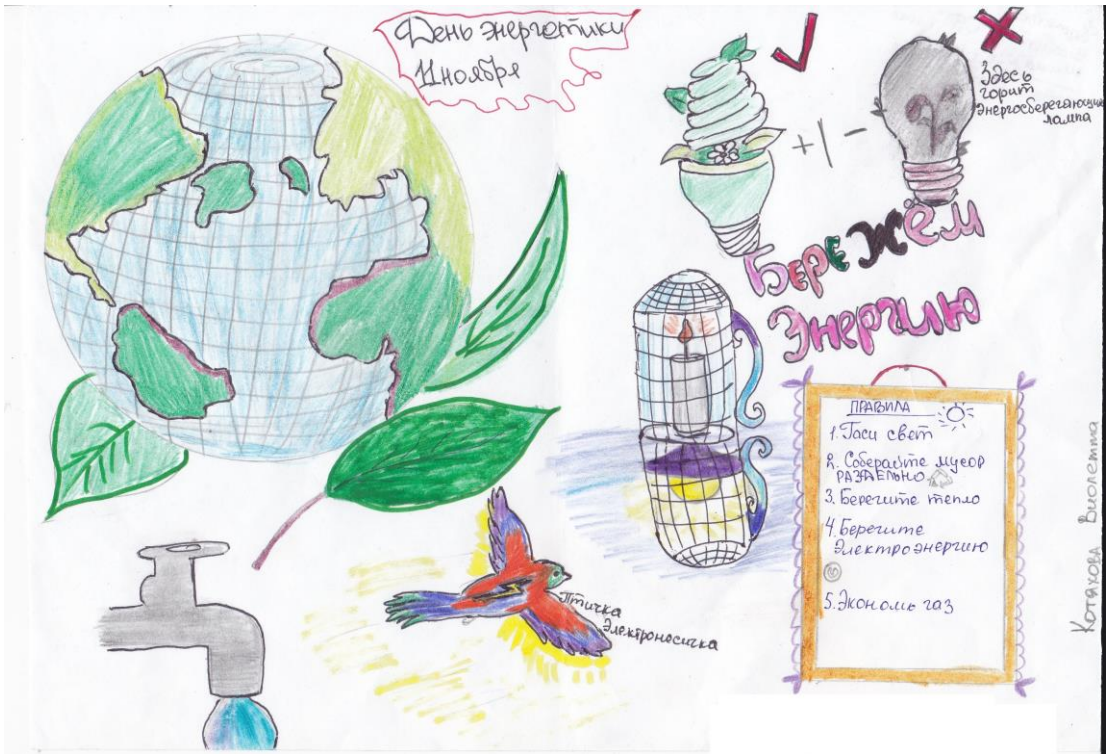 День энергетики
11 ноября
Здесь
горит
энергосберегающие
лампа
+/-
Бережём
Энергию
ПРАВИЛА
1. Гаси свет
2. Соберайте мусор
РАЗДЕЛЬНО
3. Берегите тепло
4. Берегите
Электроэнергию
5. Экономь газ
Птичка
Электроносичка
Котяхова Виолетта